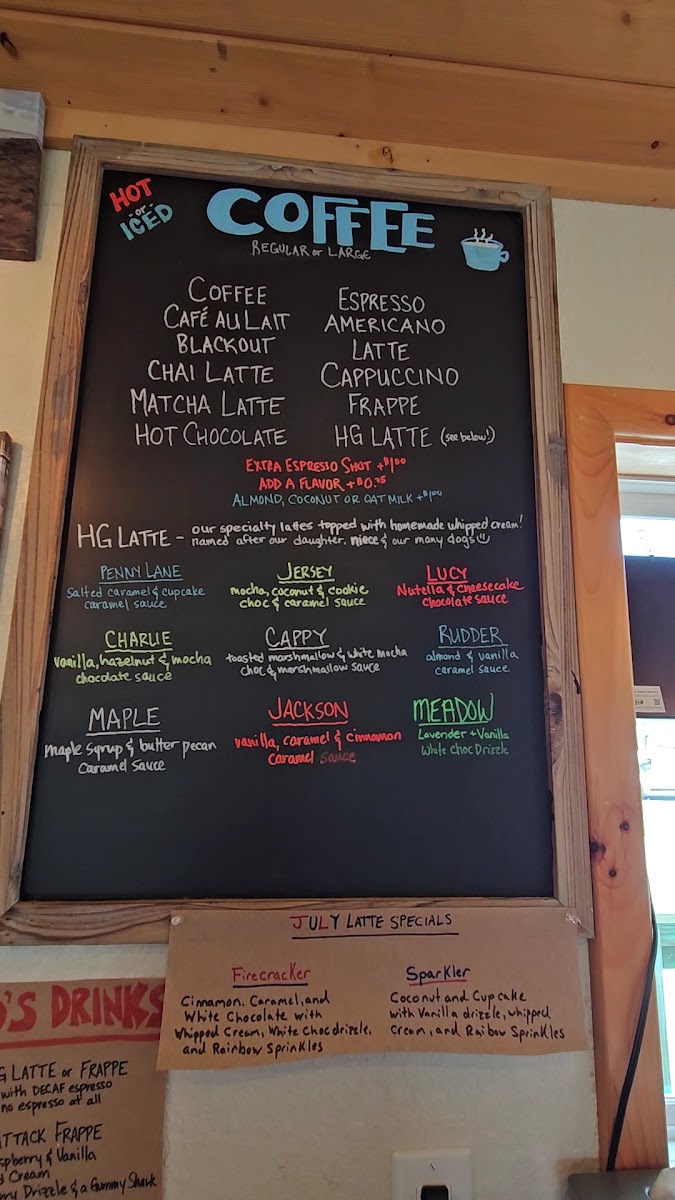 HOT
-or-
ICED
COFFEE
REGULAR or LARGE
COFFEE
CAFÉ AU LAIT
BLACKOUT
CHAI LATTE
MATCHA LATTE
HOT CHOCOLATE
ESPRESSO
AMERICANO
LATTE
CAPPUCCINO
FRAPPE
HG LATTE (see below!)
EXTRA ESPRESSO SHOT +$1.00
ADD A FLAVOR +$0.75
ALMOND, COCONUT OR OAT MILK +$1.00
HG LATTE - our specialty lattes topped with homemade whipped cream!
named after our daughter, niece & our many dogs
PENNY LANE
Salted caramel & cupcake
caramel sauce
JERSEY
mocha, coconut & cookie
choc & caramel sauce
LUCY
Nutella & Cheesecake
Chocolate sauce
CHARLIE
vanilla, hazelnut & mocha
chocolate sauce
CAPPY
toasted marshmallow & white mocha
choc & marshmallow sauce
RUDDER
almond & vanilla
caramel sauce
MAPLE
maple syrup & butter pecan
caramel sauce
JACKSON
vanilla, caramel & cinnamon
caramel sauce
MEADOW
Lavender + Vanilla
White Choc Drizzle
JULY LATTE SPECIALS
Firecracker
Cinnamon, Caramel, and
White Chocolate with
Whipped Cream, White Choc drizzle,
and Rainbow Sprinkles
Sparkler
Coconut and Cupcake
with Vanilla drizzle, whipped
Cream, and Raibow Sprinkles
'S DRINKS
G LATTE or FRAPPE
with DECAF espresso
no espresso at all
ATTACK FRAPPE
spberry & Vanilla
d Cream
rry Drizzle & a Gummy Shark